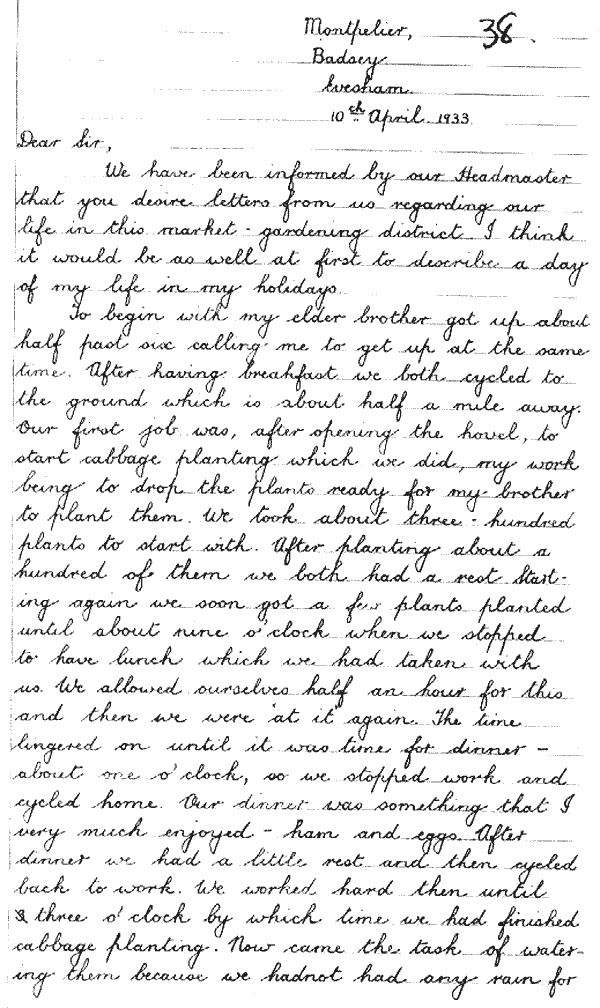 Montpelier, 38.
Badsey
Evesham.
10th April. 1933
Dear Sir,
We have been informed by our Headmaster
that you desire letters from us regarding our
life in this market-gardening district. I think
it would be as well at first to describe a day
of my life in my holidays.
To begin with my elder brother got up about
half past six calling me to get up at the same
time. After having breakfast we both cycled to
the ground which is about half a mile away.
Our first job was, after opening the hovel, to
start cabbage planting which we did, my work
being to drop the plants ready for my brother
to plant them. We took about three-hundred
plants to start with. After planting about a
hundred of them we both had a rest. Start-
ing again we soon got a few plants planted
until about nine o'clock when we stopped
to have lunch which we had taken with
us. We allowed ourselves half an hour for this
and then we were 'at it' again. The time
lingered on until it was time for dinner -
about one o'clock, so we stopped work and
cycled home. Our dinner was something that I
very much enjoyed - ham and eggs. After
dinner we had a little rest and then cycled
back to work. We worked hard then until
three o'clock by which time we had finished
cabbage planting. Now came the task of water-
ing them because we hadnot had any rain for